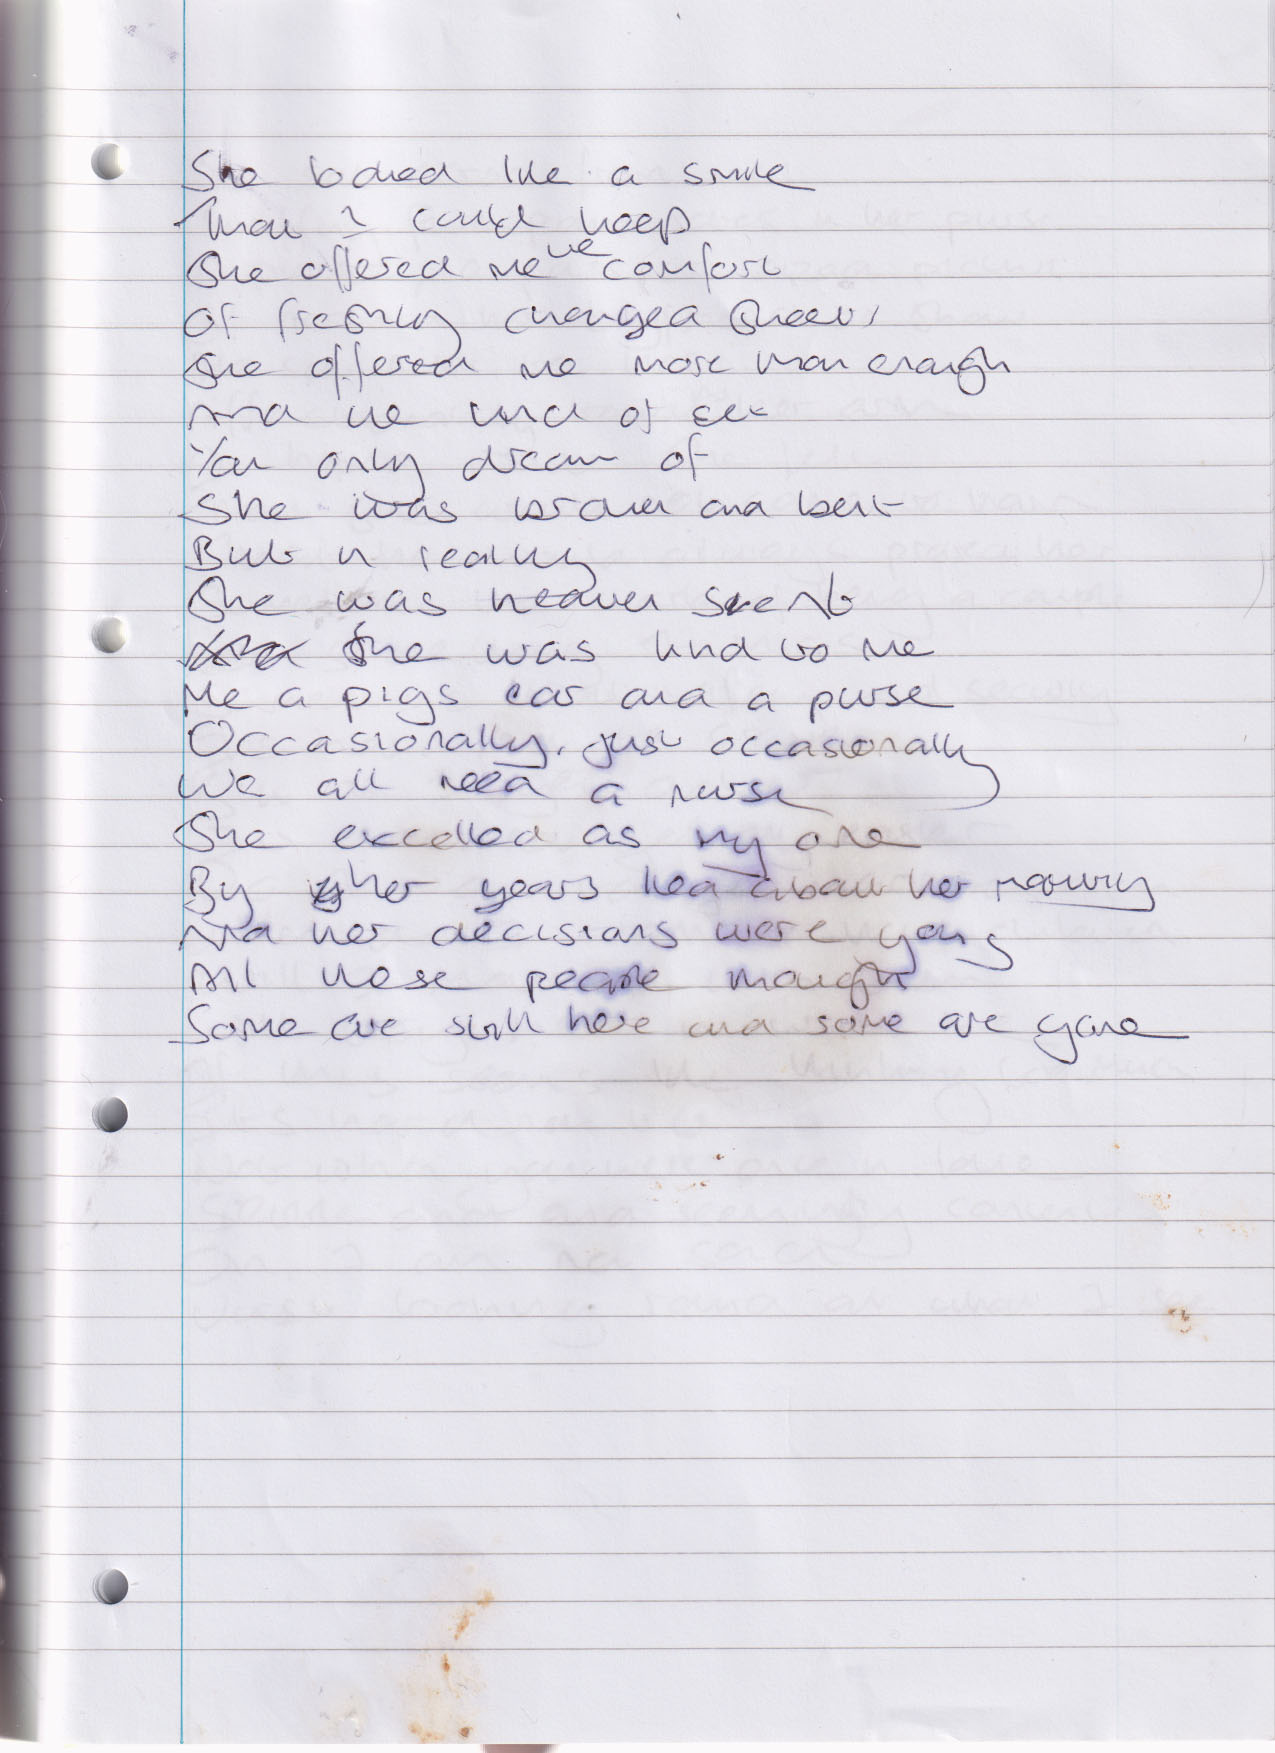 She looked like a smile
That I could keep
She offered me the comfort
Of freshly changed sheets
She offered me more than enough
And the kind of sex
You only dream of
She was broken and bent
But in reality
She was heaven sent
She was kind to me
Me a pigs ear and a purse
Occasionally, just occasionally
We all need a nurse
She excelled as my one
By her years lied about her maturity
And her decisions were young
All these people thought
Some are still here and some are gone